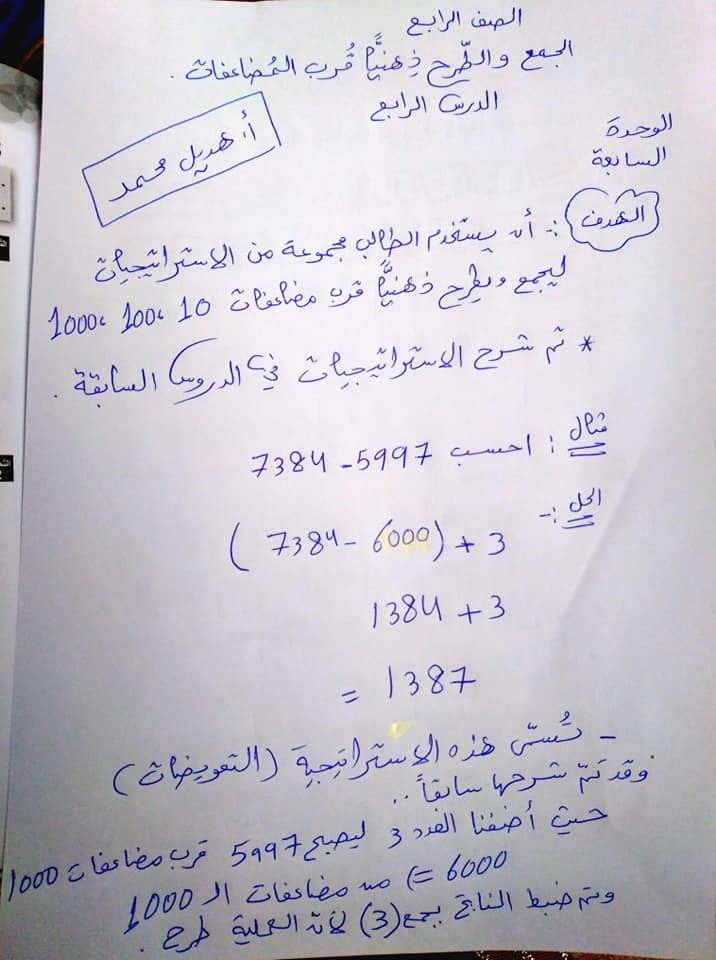 الصف الرابع
الجمع والطّرح ذِهنيًّا قُرب المُضاعفات .
الدرس الرابع
أ. هديل محمد
الوحدة
السابعة
الهدف :- أن يستخدم الطالب مجموعة من الاستراتيجيات
ليجمع ويطرح ذهنيًّا قرب مضاعفات 10 ،100 ،1000
* تم شرح الاستراتيجيات في الدروس السابقة .
مثال : احسب 7384 - 5997
الحل :-
(7384 - 6000) + 3
1384 + 3
= 1387
- تُسمّى هذه الاستراتيجية (التعويضات)
وقد تمّ شرحها سابقاً ..
حيث أضفنا العدد 3 ليصبح 5997 قرب مضاعفات 1000
6000 => من مضاعفات الـ 1000
وتم ضبط الناتج بجمع (3) لأن العملية طرح .